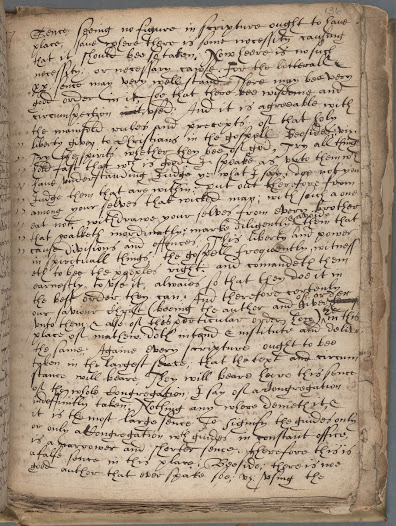 Sence, seeing no figure in scripture ought to have
place, save where there is some necessity causing
that it should bee so taken, Now heere is no such
necessity, or necessary cause, For the litterall
sence may very well stand. There may bee very
good order in it, so that there bee wisdome and
circumspection used. And it is agreeable with
the manifold rules and precepts, of that holy
liberty given to Christians in the gospell. Besides
Try the spirits whether they bee of god, Try all things
hold fast that wch is good, I speake as unto them wch
have understanding Judge ye what I say, doe not you
Judge them that are within, put out therfore from
among your selves that wicked man, with such a one
eat not, withdrawe your selves from every brother
that walketh inordinatly, marke diligently them that
cause divisions and offences. This liberty and power
in spirituall things, the gospell frequently witness
eth to bee the peoples right, and comandeth them
earnestly to use it, alwaies so that they doe it in
the best order they can. And therefore certenly
our saviour Christ (beeing the author and giver
unto them, also of this perticular order here) in this
place of mathew, doth intend & institute and deliver
the same. Againe every scripture ought to bee
taken in the largest sence, that the text and circum
stance will beare. They will beare heere this sence
of the whole Congregation, I say of a Congregation
indefinitly taken. Nothing any where denieth it
it is the most large sence. To signify the guides only
or only a Congregation wch guides in constant office,
is a narrower and shorter sence: therfore this is
a false sence in this place. Besides, there is noe
good author that ever spake soe, using the